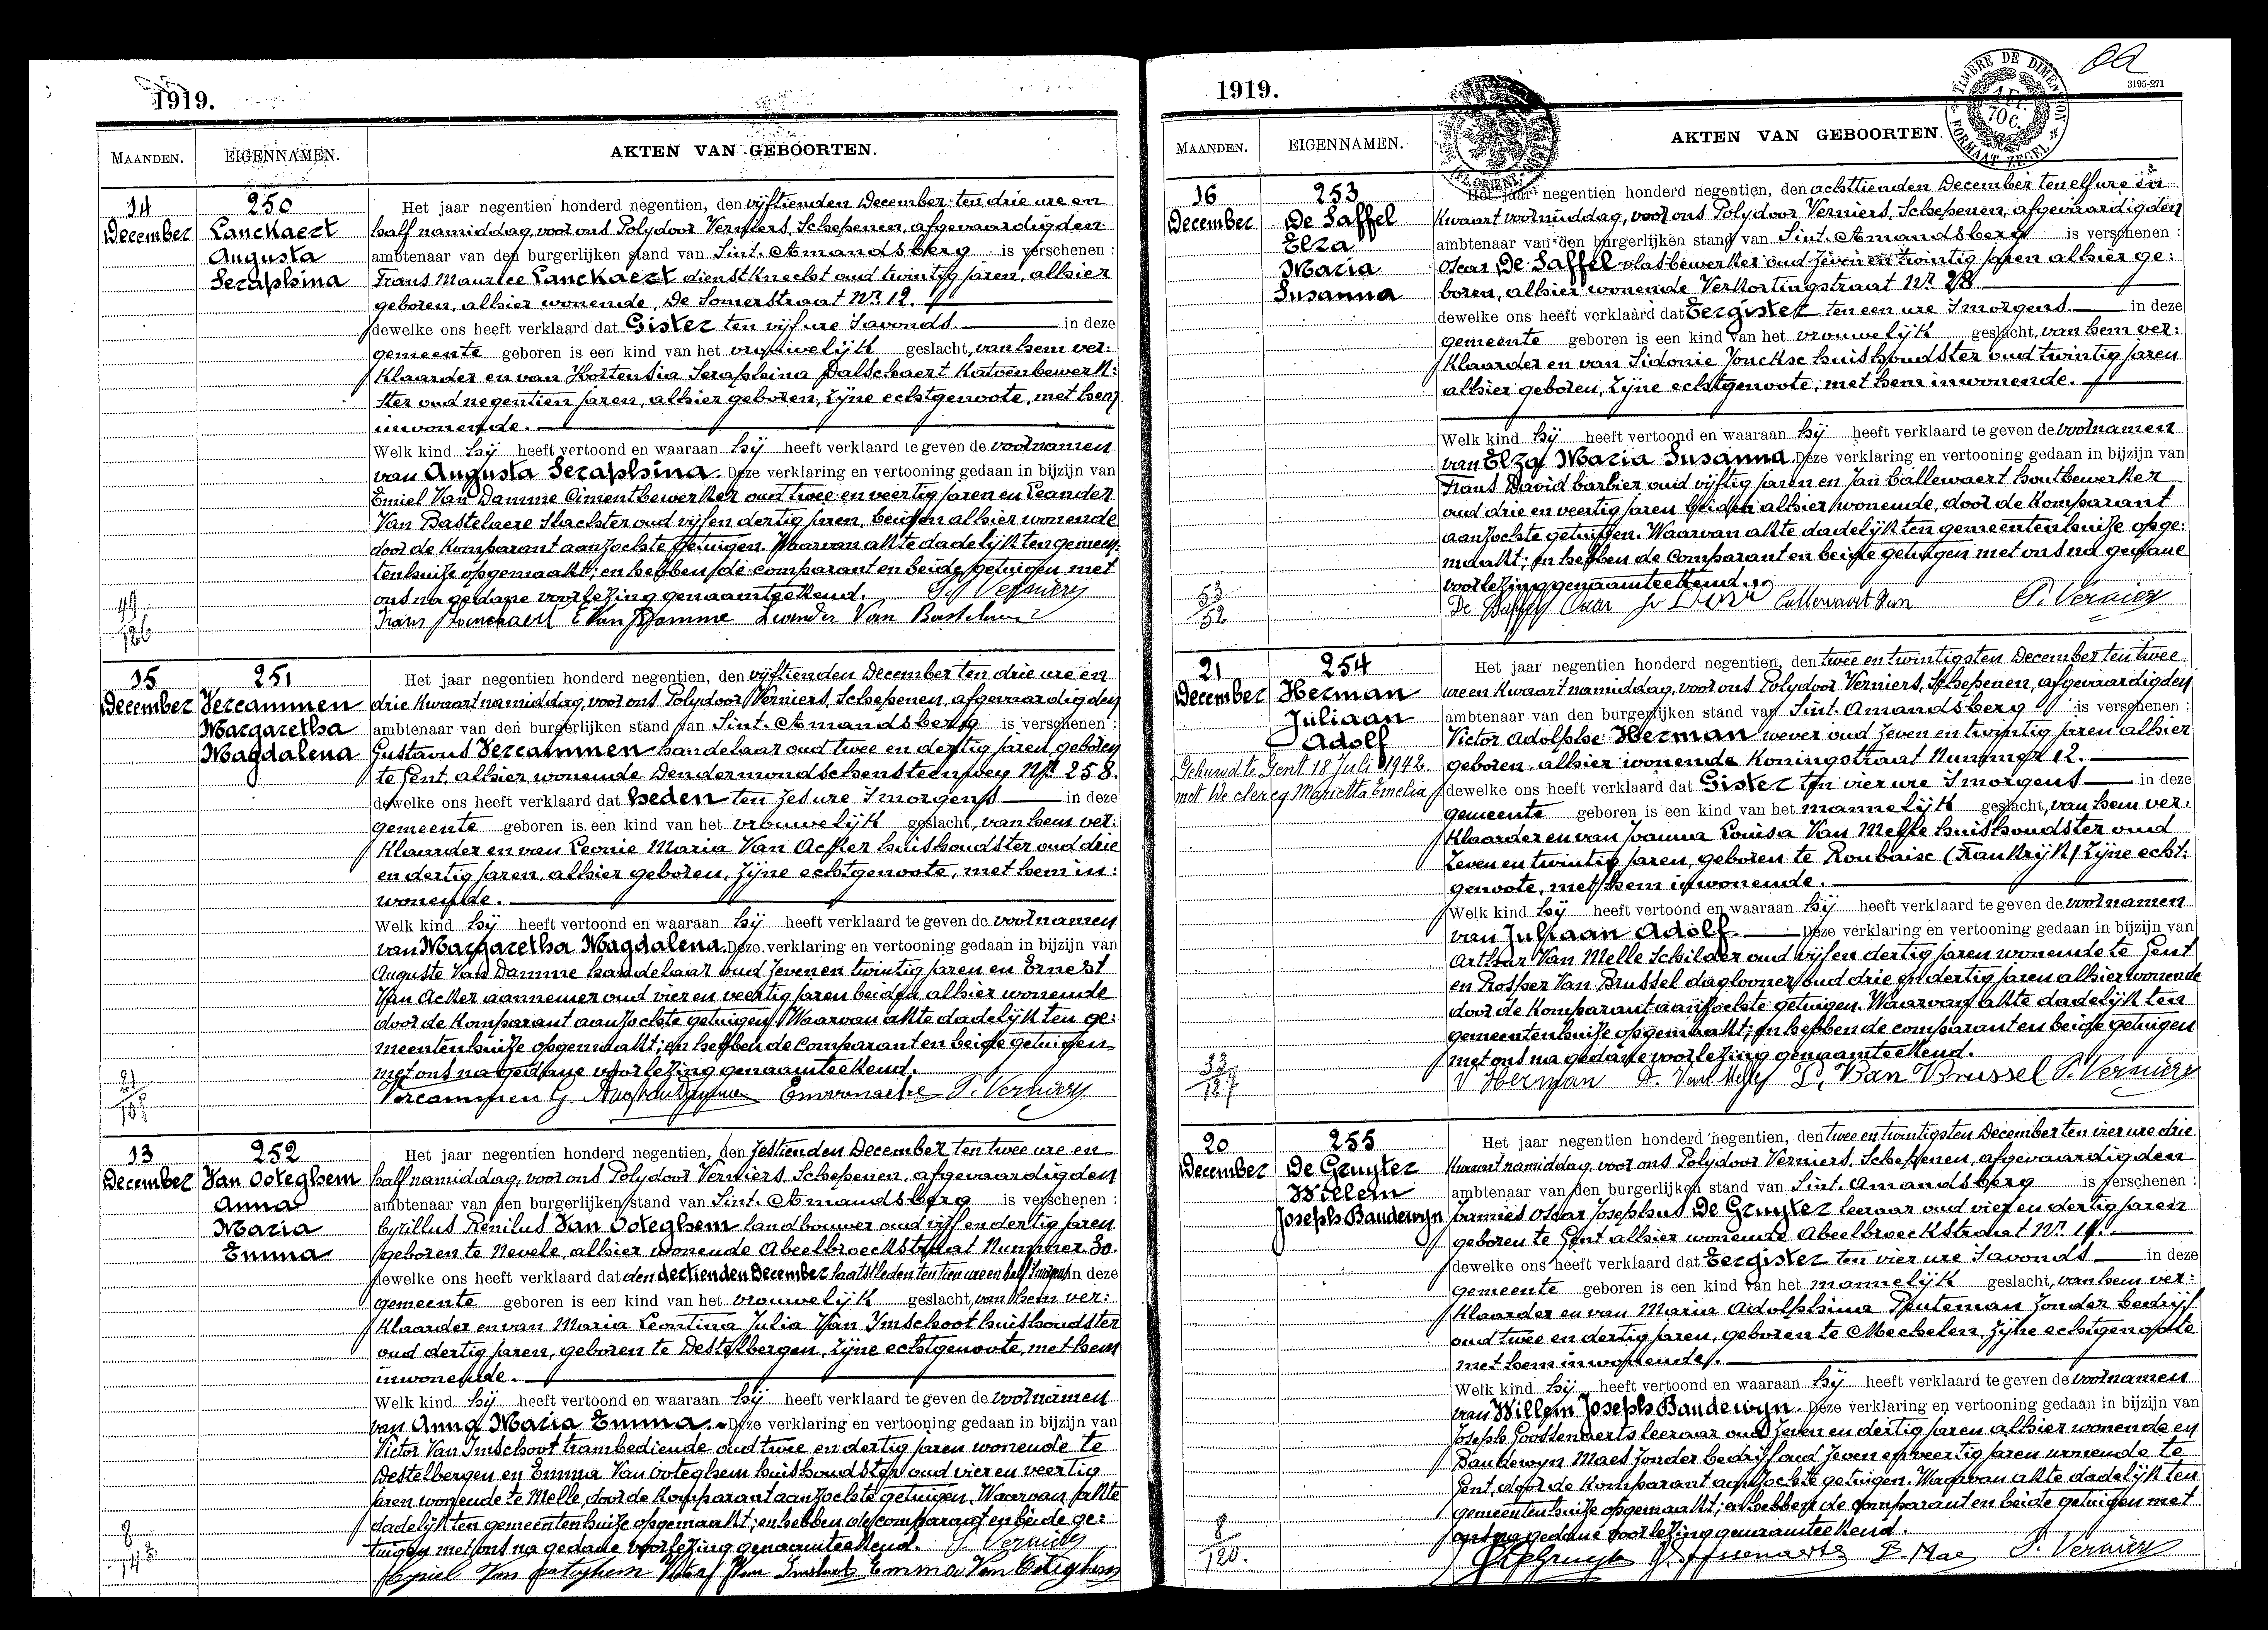 1919.
MAANDEN.
EIGENNAMEN.
AKTEN VAN GEBOORTEN.
14
December
250
Lanckaert
Augusta
Seraphina
Het jaar negentien honderd negentien, den vijftienden December ten drie ure en
half namiddag, voor ons Polydoor Verniers, Schepenen, afgevaardigden
ambtenaar van den burgerlijken stand van Sint. Amandsberg is verschenen :
Frans Maurice Lanckaert dienstknecht oud twintig jaren, alhier
geboren, alhier wonende, De Somerstraat Nr. 12.
dewelke ons heeft verklaard dat Gister ten vijf ure Savonds. in deze
gemeente geboren is een kind van het vrouwelijk geslacht, van hem ver:
klaarder en van Hortensia Seraphina Dalschaert Katoenbewerk:
ster oud negentien jaren, alhier geboren, zijne echtgenoote, met hem
inwonende.
Welk kind hij heeft vertoond en waaraan hij heeft verklaard te geven de voornamen
van Augusta Seraphina. Deze verklaring en vertooning gedaan in bijzijn van
Emiel Van Damme Cimentbewerker oud twee en veertig jaren en Leander
Van Bastelaere Slachter oud vijf en dertig jaren, beiden alhier wonende
door de Komparant aanzochte getuigen. Waarvan akte dadelijk ten gemeen:
tenhuize opgemaakt; en hebben de comparant en beide getuigen met
ons na gedane voorlezing genaamteekend. P. Verniers
Frans Lanckaert E Van Damme Leander Van Bastelaere
49
126
15
December
251
Vercammen
Margaretha
Magdalena
Het jaar negentien honderd negentien, den vijftienden December ten drie ure en
drie kwaart namiddag, voor ons Polydoor Verniers, Schepenen, afgevaardigden
ambtenaar van den burgerlijken stand van Sint. Amandsberg is verschenen :
Gustavus Vercammen handelaar oud twee en dertig jaren, geboren
te Gent, alhier wonende Dendermondschensteenweg Nr. 258.
dewelke ons heeft verklaard dat heden ten zes ure Smorgens in deze
gemeente geboren is een kind van het vrouwelijk geslacht, van hem ver:
klaarder en van Leonie Maria Van Acker huishoudster oud drie
en dertig jaren, alhier geboren, zijne echtgenoote, met hem in:
wonende.
Welk kind hij heeft vertoond en waaraan hij heeft verklaard te geven de voornamen
van Margaretha Magdalena. Deze verklaring en vertooning gedaan in bijzijn van
Auguste Van Damme handelaar oud zeven en twintig jaren en Ernest
Van Acker aannemer oud vier en veertig jaren beiden alhier wonende
door de Komparant aanzochte getuigen. Waarvan akte dadelijk ten ge:
meentenhuize opgemaakt; en hebben de Comparant en beide getuigen
met ons na gedane voorlezing genaamteekend.
Vercammen G. P. Verniers
21
252
13
December
Van Ooteghem
Anna
Maria
Emma
Het jaar negentien honderd negentien, den zestienden December ten twee ure en
half namiddag, voor ons Polydoor Verniers, Schepenen, afgevaardigden
ambtenaar van den burgerlijken stand van Sint. Amandsberg is verschenen :
Cyrillus Renilus Van Ooteghem landbouwer oud vijf en dertig jaren
geboren te Nevele, alhier wonende Abeelbroeckstraat Nummer 30.
dewelke ons heeft verklaard dat den dertienden December laatstleden ten tien ure en half Smorgens in deze
gemeente geboren is een kind van het vrouwelijk geslacht, van hem ver:
klaarder en van Maria Leontina Julia Van Imschoot huishoudster
oud dertig jaren, geboren te Destelbergen, zijne echtgenoote, met hem
inwonende.
Welk kind hij heeft vertoond en waaraan hij heeft verklaard te geven de voornamen
van Anna Maria Emma. Deze verklaring en vertooning gedaan in bijzijn van
Victor Van Imschoot trambediende oud twee en dertig jaren wonende te
Destelbergen en Emma Van Ooteghem huishoudster oud vier en veertig
jaren wonende te Melle, door de Komparant aanzochte getuigen. Waarvan akte
dadelijk ten gemeentenhuize opgemaakt; en hebben de comparant en beide ge:
tuigen met ons na gedane voorlezing genaamteekend. P. Verniers
Van Ooteghem Victor Van Imschoot Emma Van Oteghem
8
1919.
3195-271
TIMBRE DE DIMENSION
FORMAAT ZEGEL
MAANDEN.
EIGENNAMEN.
AKTEN VAN GEBOORTEN.
16
December
253
De Saffel
Elza
Maria
Susanna
Het jaar negentien honderd negentien, den achttienden December ten elf ure en
Kwaart voormiddag, voor ons Polydoor Verniers, Schepenen, afgevaardigden
ambtenaar van den burgerlijken stand van Sint. Amandsberg is verschenen :
Oscar De Saffel vlasbewerker oud zeven en twintig jaren alhier ge:
boren, alhier wonende Verkortingstraat Nr. 28.
dewelke ons heeft verklaard dat Eergister ten een ure Smorgens. in deze
gemeente geboren is een kind van het vrouwelijk geslacht, van hem ver:
klaarder en van Sidonie Jonckse huishoudster oud twintig jaren
alhier geboren, zijne echtgenoote, met hem inwonende.
Welk kind hij heeft vertoond en waaraan hij heeft verklaard te geven de voornamen
van Elza Maria Susanna. Deze verklaring en vertooning gedaan in bijzijn van
Frans David barbier oud vijftig jaren en Jan Callewaert houtbewerker
oud drie en veertig jaren beiden alhier wonende, door de Komparant
aanzochte getuigen. Waarvan akte dadelijk ten gemeentenhuize opge:
maakt; en hebben de Comparant en beide getuigen met ons na gedane
voorlezing genaamteekend.
De Saffel Oscar Callewaert Jan P. Verniers
53
52
21
December
254
Herman
Juliaan
Adolf
Gehuwd te Gent 18 Juli 1942.
met De clercq Marietta Emelia
Het jaar negentien honderd negentien, den twee en twintigsten December ten twee
ure en Kwaart namiddag, voor ons Polydoor Verniers, Schepenen, afgevaardigden
ambtenaar van den burgerlijken stand van Sint. Amandsberg is verschenen :
Victor Adolphe Herman wever oud zeven en twintig jaren alhier
geboren, alhier wonende Koningstraat Nummer 12.
dewelke ons heeft verklaard dat Gister ten vier ure Smorgens in deze
gemeente geboren is een kind van het mannelijk geslacht, van hem ver:
klaarder en van Joanna Louisa Van Melle huishoudster oud
zeven en twintig jaren, geboren te Roubaise (Frankrijk) zijne echt:
genoote, met hem inwonende.
Welk kind hij heeft vertoond en waaraan hij heeft verklaard te geven de voornamen
van Juliaan Adolf. Deze verklaring en vertooning gedaan in bijzijn van
Arthur Van Melle Schilder oud vijf en dertig jaren wonende te Gent
en Prosper Van Brussel daglooner oud drie en dertig jaren alhier wonende
door de Komparant aanzochte getuigen. Waarvan akte dadelijk ten
gemeentenhuize opgemaakt; en hebben de comparant en beide getuigen
met ons na gedane voorlezing genaamteekend.
V Herman A. Van Melle P. Van Brussel P. Verniers
33
127
20
December
255
De Gruyter
Willem
Joseph Baudewyn
Het jaar negentien honderd negentien, den twee en twintigsten December ten vier ure drie
Kwaart namiddag, voor ons Polydoor Verniers, Schepenen, afgevaardigden
ambtenaar van den burgerlijken stand van Sint. Amandsberg is verschenen :
Oscar Josephus De Gruyter leeraar oud vier en dertig jaren
geboren te Gent alhier wonende Abeelbroeckstraat Nr.
dewelke ons heeft verklaard dat Eergister ten vier ure Savonds in deze
gemeente geboren is een kind van het mannelijk geslacht, van hem ver:
klaarder en van Maria Adolphina Puteman zonder bedrijf
oud twee en dertig jaren, geboren te Mechelen, zijne echtgenoote
met hem inwonende.
Welk kind hij heeft vertoond en waaraan hij heeft verklaard te geven de voornamen
van Willem Joseph Baudewyn. Deze verklaring en vertooning gedaan in bijzijn van
Joseph Goossenaerts leeraar oud zeven en dertig jaren alhier wonende en
Baudewyn Maes zonder bedrijf oud zeven en veertig jaren wonende te
Gent, door de Komparant aanzochte getuigen. Waarvan akte dadelijk ten
gemeentenhuize opgemaakt; en hebben de comparant en beide getuigen met
ons na gedane voorlezing genaamteekend.
De Gruyter J. Goossenaerts B. Maes P. Verniers
8
120.